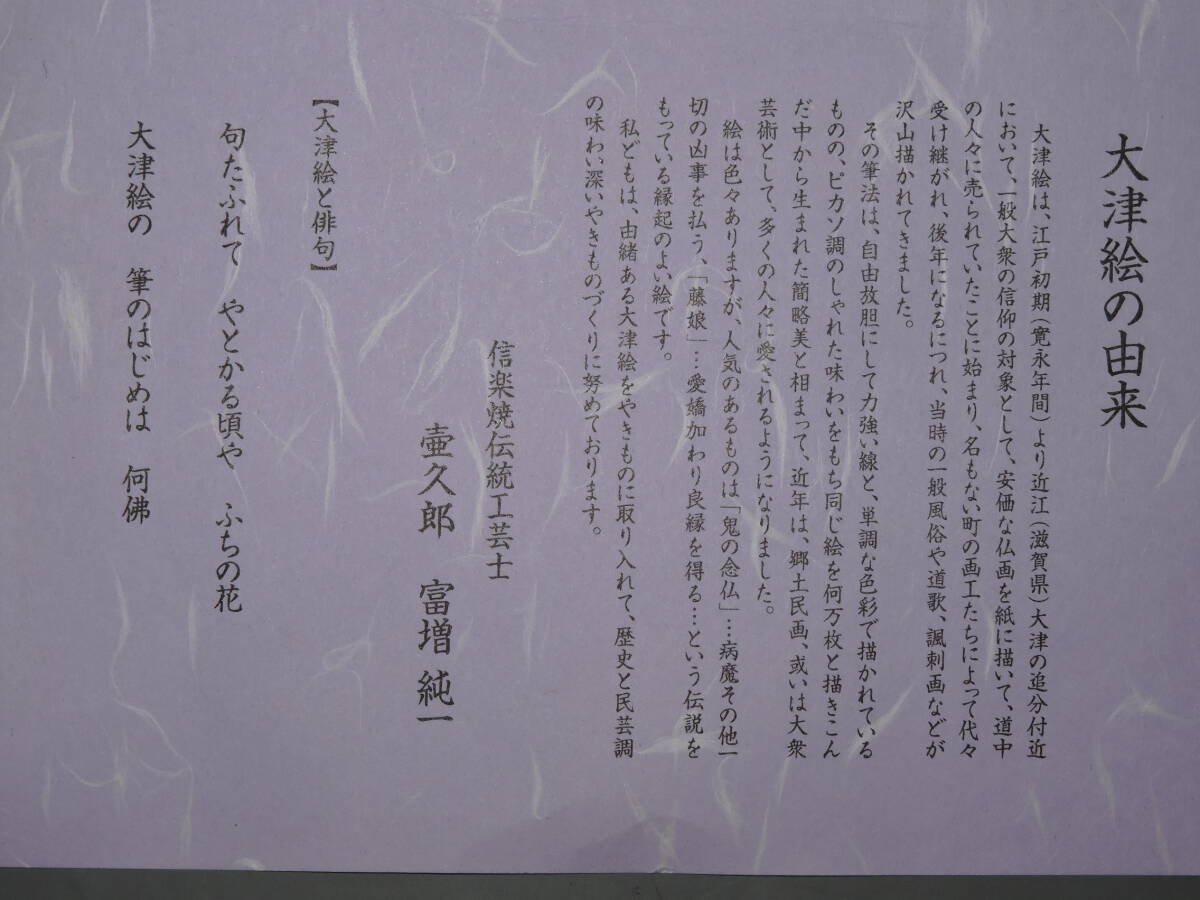 大津絵の由来
大津絵は、江戸初期(寛永年間)より近江(滋賀県)大津の追分付近
において、一般大衆の信仰の対象として、安価な仏画を紙に描いて、道中
の人々に売られていたことに始まり、名もない町の画工たちによって代々
受け継がれ、後年になるにつれ、当時の一般風俗や道歌、諷刺画などが
沢山描かれてきました。
その筆法は、自由放胆にして力強い線と、単調な色彩で描かれている
ものの、ピカソ調のしゃれた味わいをもち同じ絵を何万枚と描きこん
だ中から生まれた簡略美と相まって、近年は、郷土民画、或いは大衆
芸術として、多くの人々に愛されるようになりました。
絵は色々ありますが、人気のあるものは「鬼の念仏」…病魔その他一
切の凶事を払う、「藤娘」…愛嬌加わり良縁を得る…という伝説を
もっている縁起のよい絵です。
私どもは、由緒ある大津絵をやきものに取り入れて、歴史と民芸調
の味わい深いやきものづくりに努めております。
信楽焼伝統工芸士
壷久郎 富増純一
【大津絵と俳句】
句たふれて やとかる頃や ふちの花
大津絵の 筆のはじめは 何佛